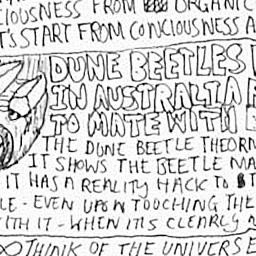 IOUSNESS FROM ORGANIC
T'S START FROM CONCIOUSNESS A
DUNE BEETLES
IN AUSTRALIA
TO MATE WITH
THE DUNE BEETLE THEOR
IT SHOWS THE BEETLE MA
IT HAS A REALITY HACK TO
LE - EVEN UPON TOUCHING THE
ITH IT - WHEN IT IS CLEARLY
∞ THINK OF THE UNIVERSE